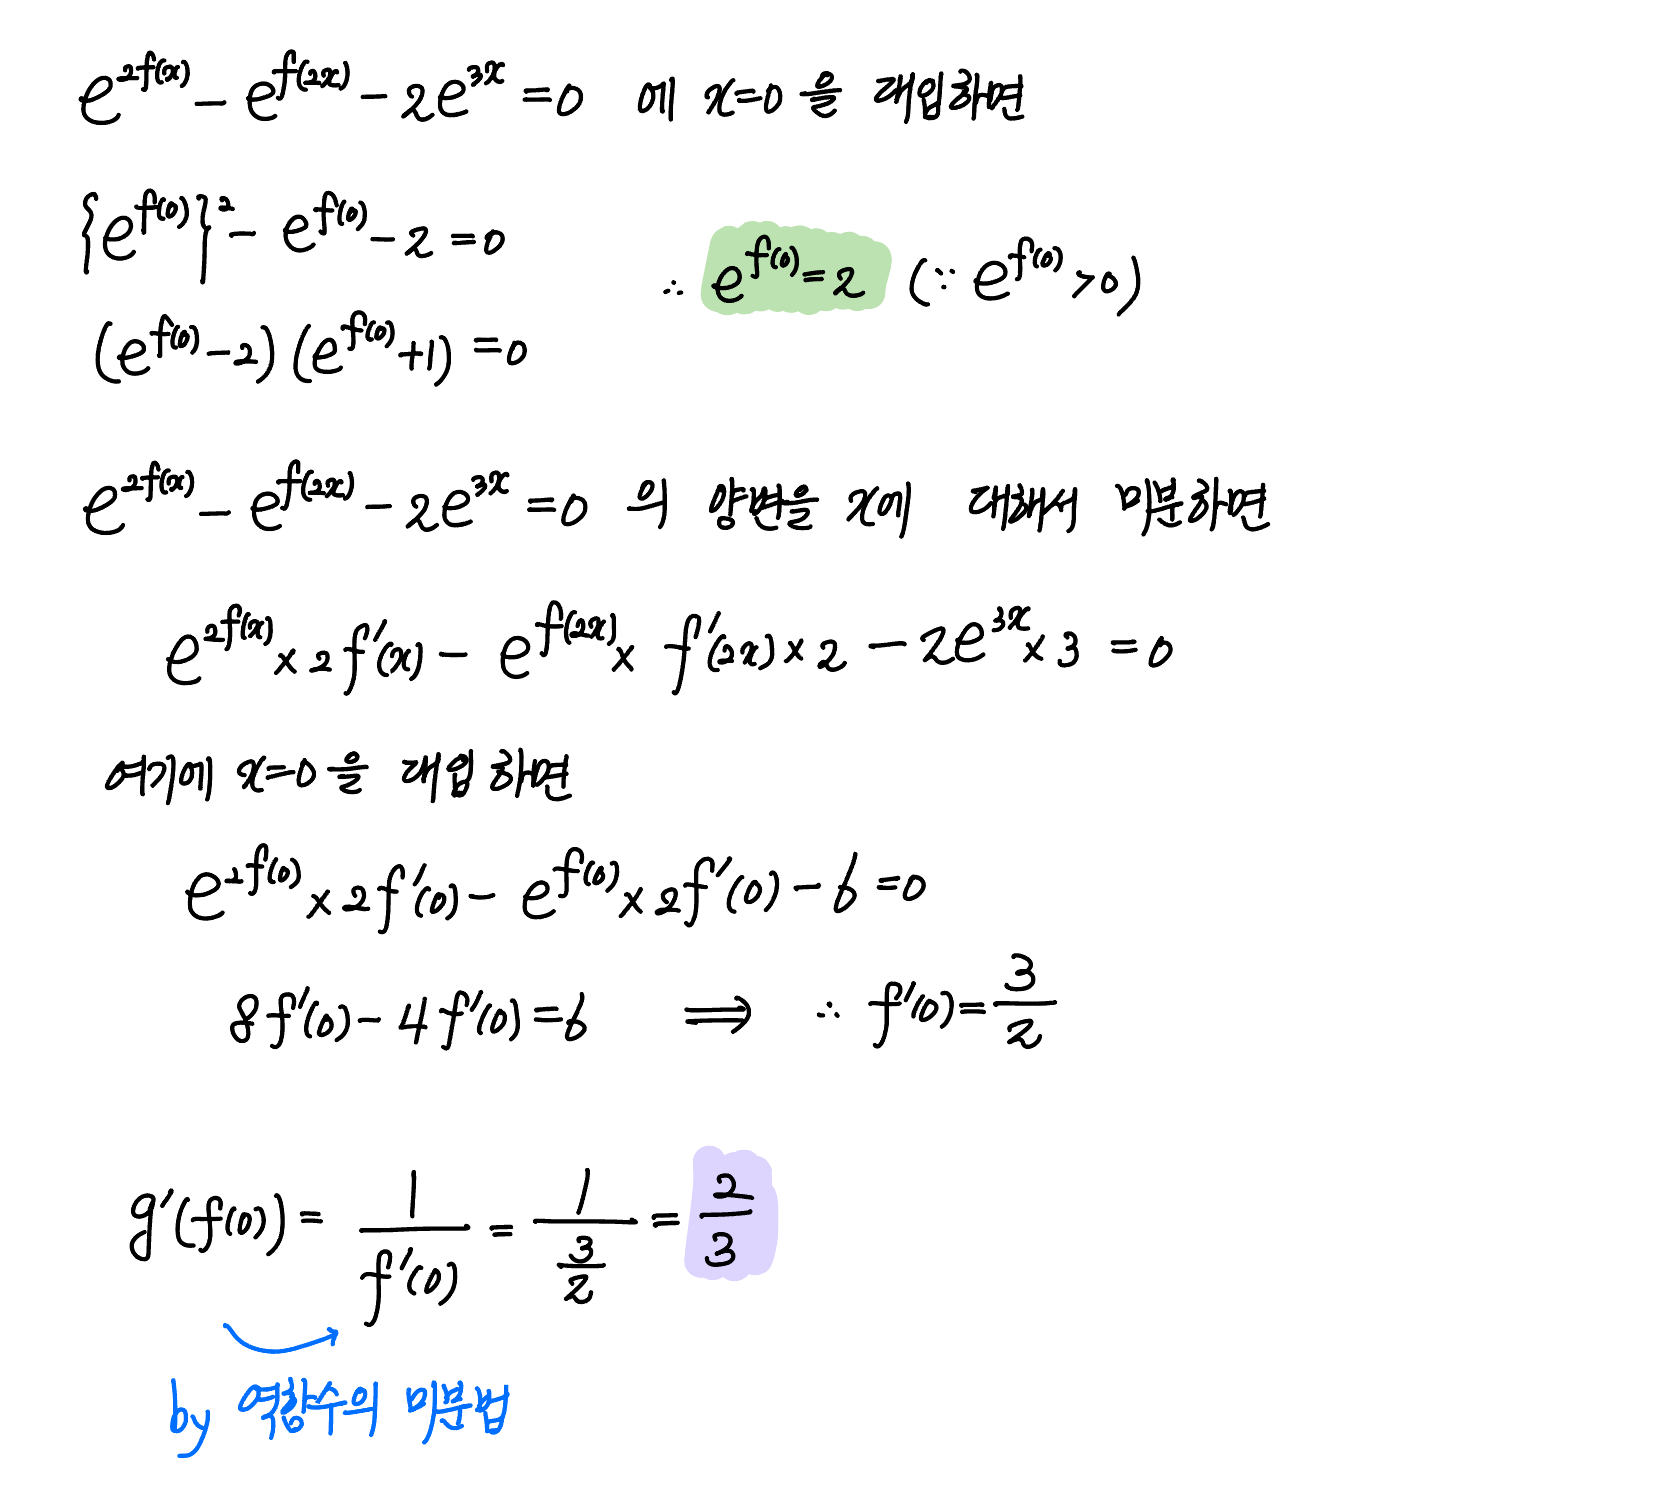 e^{2f(x)} - e^{f(2x)} - 2e^{3x} = 0 에 x=0 을 대입하면
{e^{f(0)}}^2 - e^{f(0)} - 2 = 0
∴ e^{f(0)} = 2 (∵ e^{f(0)} > 0)
(e^{f(0)} - 2)(e^{f(0)} + 1) = 0
e^{2f(x)} - e^{f(2x)} - 2e^{3x} = 0 의 양변을 x에 대해서 미분하면
e^{2f(x)} × 2f'(x) - e^{f(2x)} × f'(2x) × 2 - 2e^{3x} × 3 = 0
여기에 x=0 을 대입하면
e^{2f(0)} × 2f'(0) - e^{f(0)} × 2f'(0) - 6 = 0
8f'(0) - 4f'(0) = 6 ⟹ ∴ f'(0) = \frac{3}{2}
g'(f(0)) = \frac{1}{f'(0)} = \frac{1}{\frac{3}{2}} = \frac{2}{3}
by 역함수의 미분법